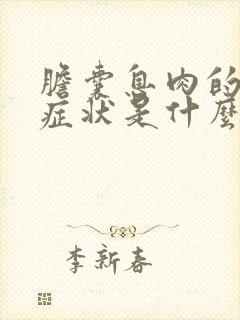 膽囊息肉的
症状是什麼
李新春